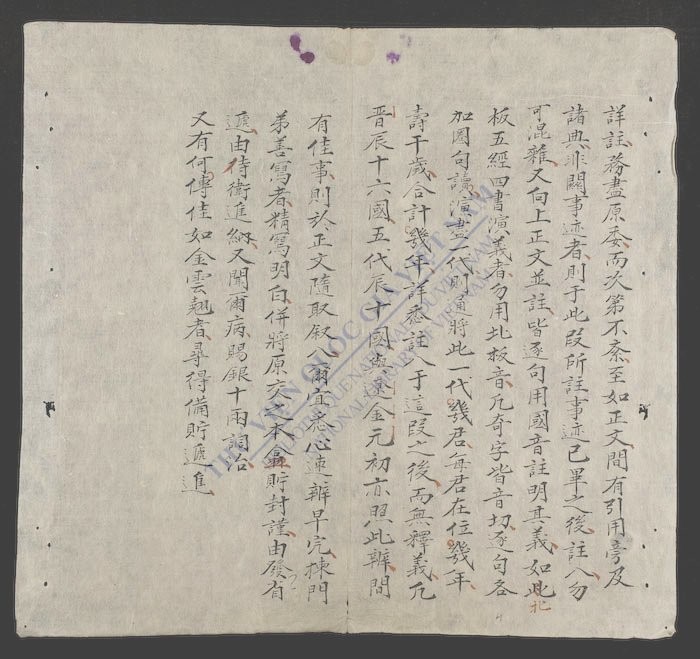 詳註務盡原委而次第不紊至如正文間有引用旁及
諸典非關事迹者則于此段所註事迹已畢之後註入勿
可混雜又向上正文並註皆逐句用國音註明其義如此
北
板五經四書演義者勿用北板音凡奇字皆音切逐句各
加圈句讀演盡一代則通將此一代幾君每君在位幾年
壽干歲合計幾年詳悉註入于這段之後而無釋義凡
晋辰十六國五代辰十國與遼金元初亦照此辨間
有佳事則於正文隨取叙入爾宜悉心速辨早完棟門
弟善寫者精寫明白併將原交之本貯封謹由發省
遞由侍衛進納又聞爾病賜銀十兩調治
又有何傳佳如金雲翹者尋得備貯遞進
THƯ VIỆN QUỐC GIA VIỆT NAM
NATIONAL LIBRARY OF VIETNAM